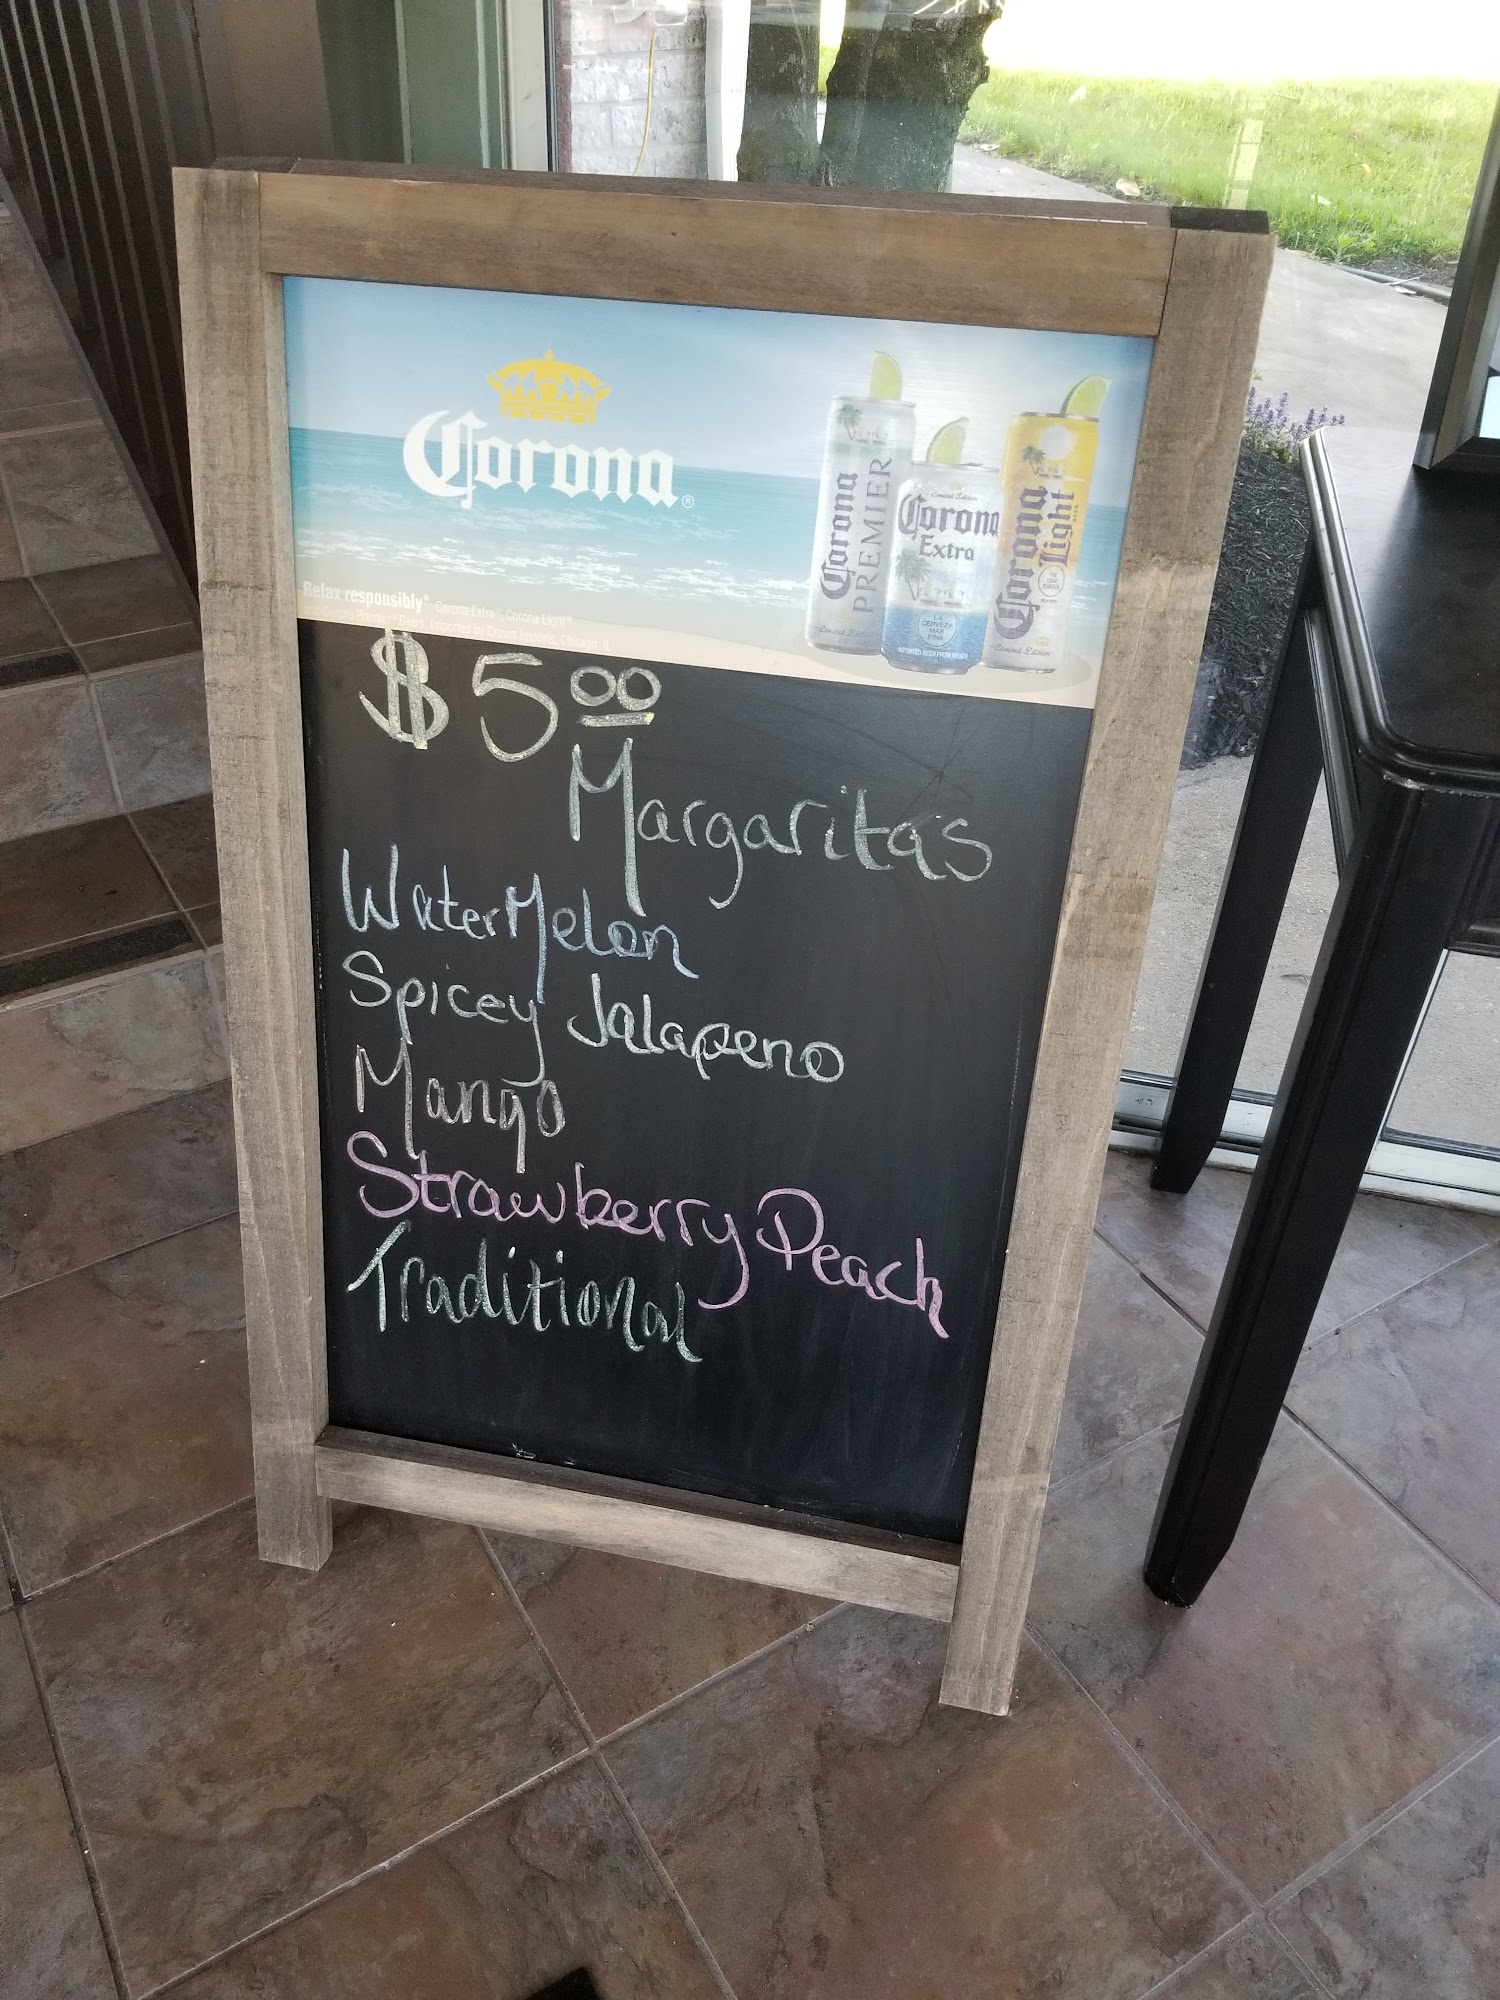 Corona®
Corona PREMIER
Limited Edition
Limited Edition
Corona
Extra
LA
CERVEZA
MAS
FINA
IMPORTED BEER FROM MEXICO
Corona Light
Limited Edition
Relax responsibly® Corona Extra®, Corona Light®
Corona Premier® Beers. Imported by Crown Imports, Chicago, IL
$5.00
Margaritas
WaterMelon
Spicey Jalapeno
Mango
Strawberry Peach
Traditional